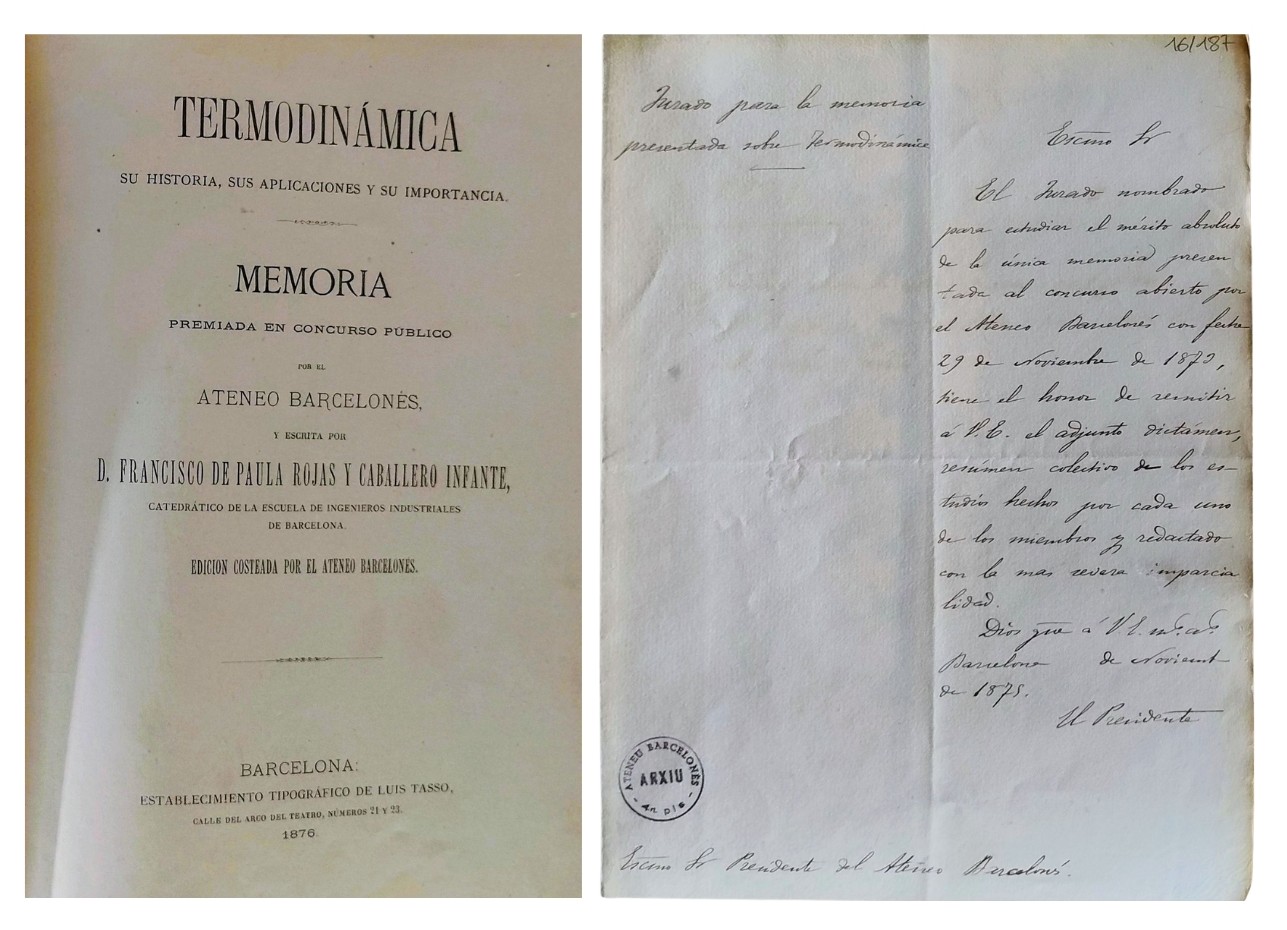 TERMODINÁMICA
SU HISTORIA, SUS APLICACIONES Y SU IMPORTANCIA.
MEMORIA
PREMIADA EN CONCURSO PÚBLICO
POR EL
ATENEO BARCELONÉS,
Y ESCRITA POR
D. FRANCISCO DE PAULA ROJAS Y CABALLERO INFANTE,
CATEDRÁTICO DE LA ESCUELA DE INGENIEROS INDUSTRIALES
DE BARCELONA.
EDICION COSTEADA POR EL ATENEO BARCELONÉS.
BARCELONA:
ESTABLECIMIENTO TIPOGRÁFICO DE LUIS TASSO,
CALLE DEL ARCO DEL TEATRO, NÚMEROS 21 Y 23.
1876.
16/187
Jurado para la memoria
presentada sobre Termodinámica
Escmo Sr
El Jurado nombrado
para estudiar el mérito absoluto
de la única memoria presen
tada al concurso abierto por
el Ateneo Barcelonés con fecha
29 de Noviembre de
tiene el honor de remitir
á V.E. el adjunto dictámen,
resúmen colectivo de los es-
tudios hechos por cada uno
de los miembros y redactado
con la mas severa imparcia
lidad.
Dios gue á V.E. ms. as.
Barcelona de Noviemb
de 1875.
El Presidente
ATENEU BARCELONÈS
ARXIU
Escmo Sr Presidente del Ateneo Barcelonés.